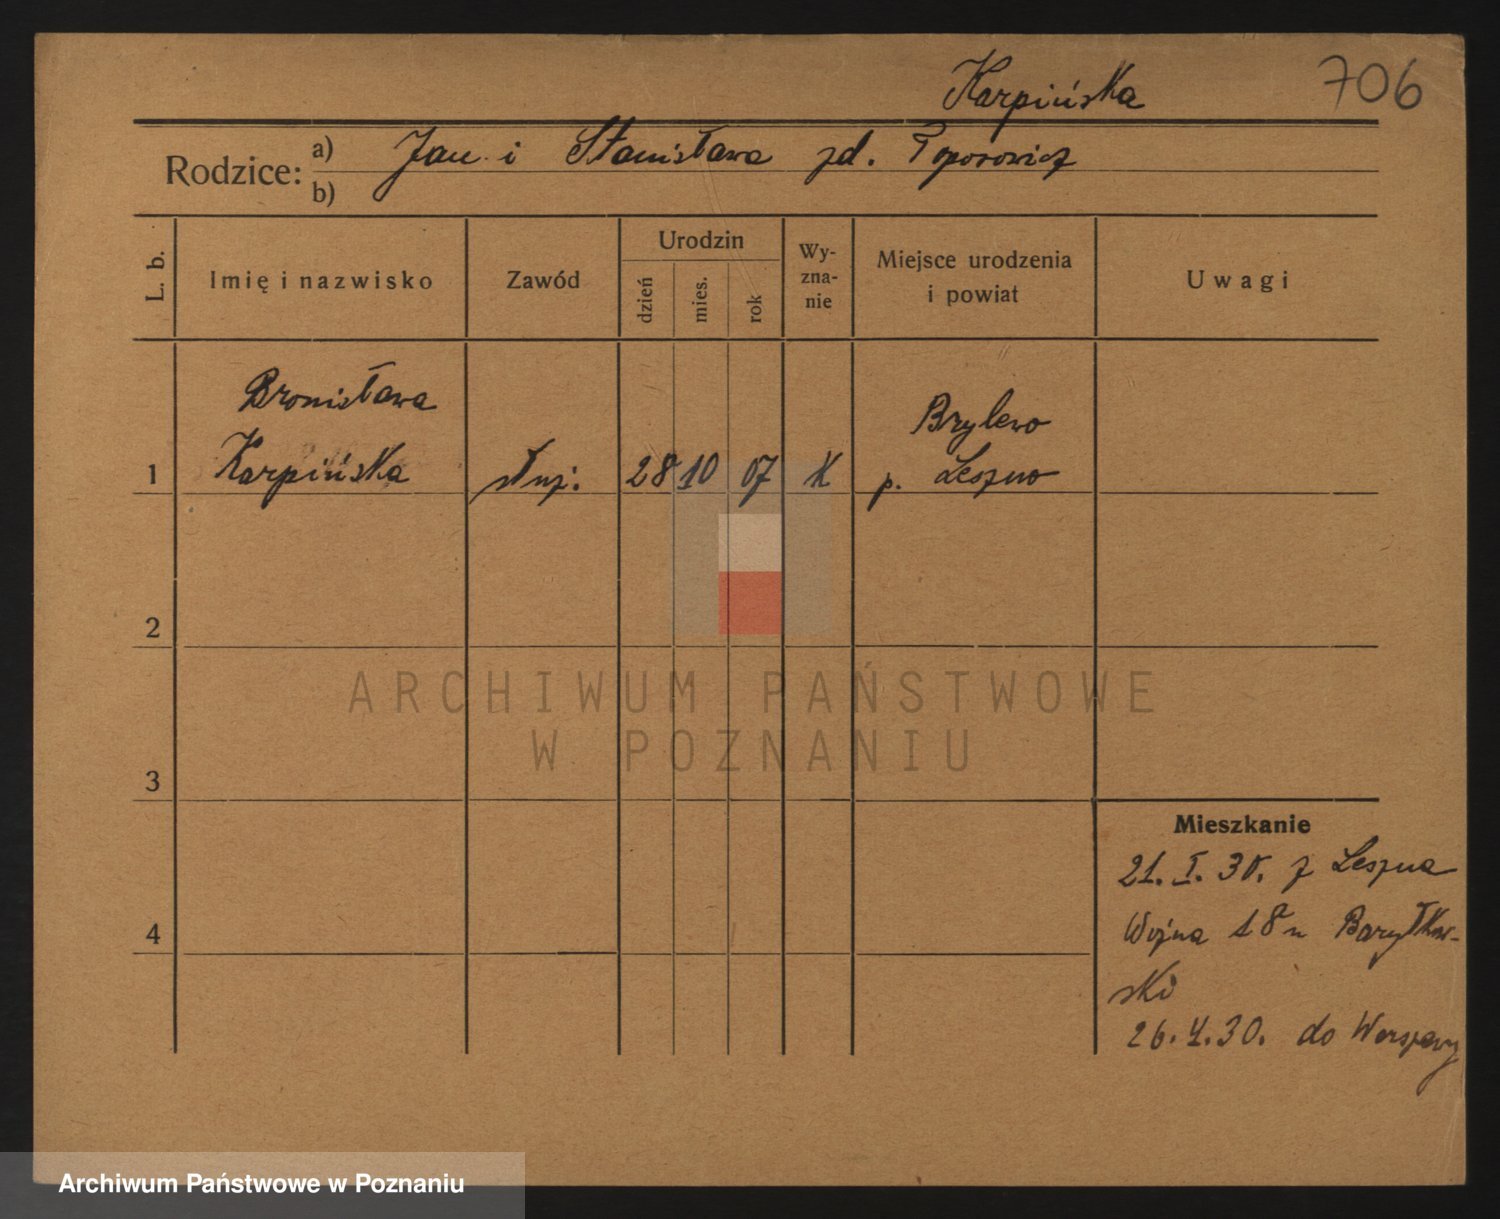 Karpińska
706
Rodzice: a) Jan i Stanisława zd. Toporowicz
b)
L. b.
Imię i nazwisko
Zawód
Urodzin
dzień
mies.
rok
Wy-
zna-
nie
Miejsce urodzenia
i powiat
Uwagi
Bronisława
Karpińska
1
służ.
28 10 07
K
Brylewo
p. Leszno
2
3
4
ARCHIWUM PAŃSTWOWE
W POZNANIU
Mieszkanie
21. I. 30. z Leszna
18 u
ski
26. 30. do Warszawy
Archiwum Państwowe w Poznaniu